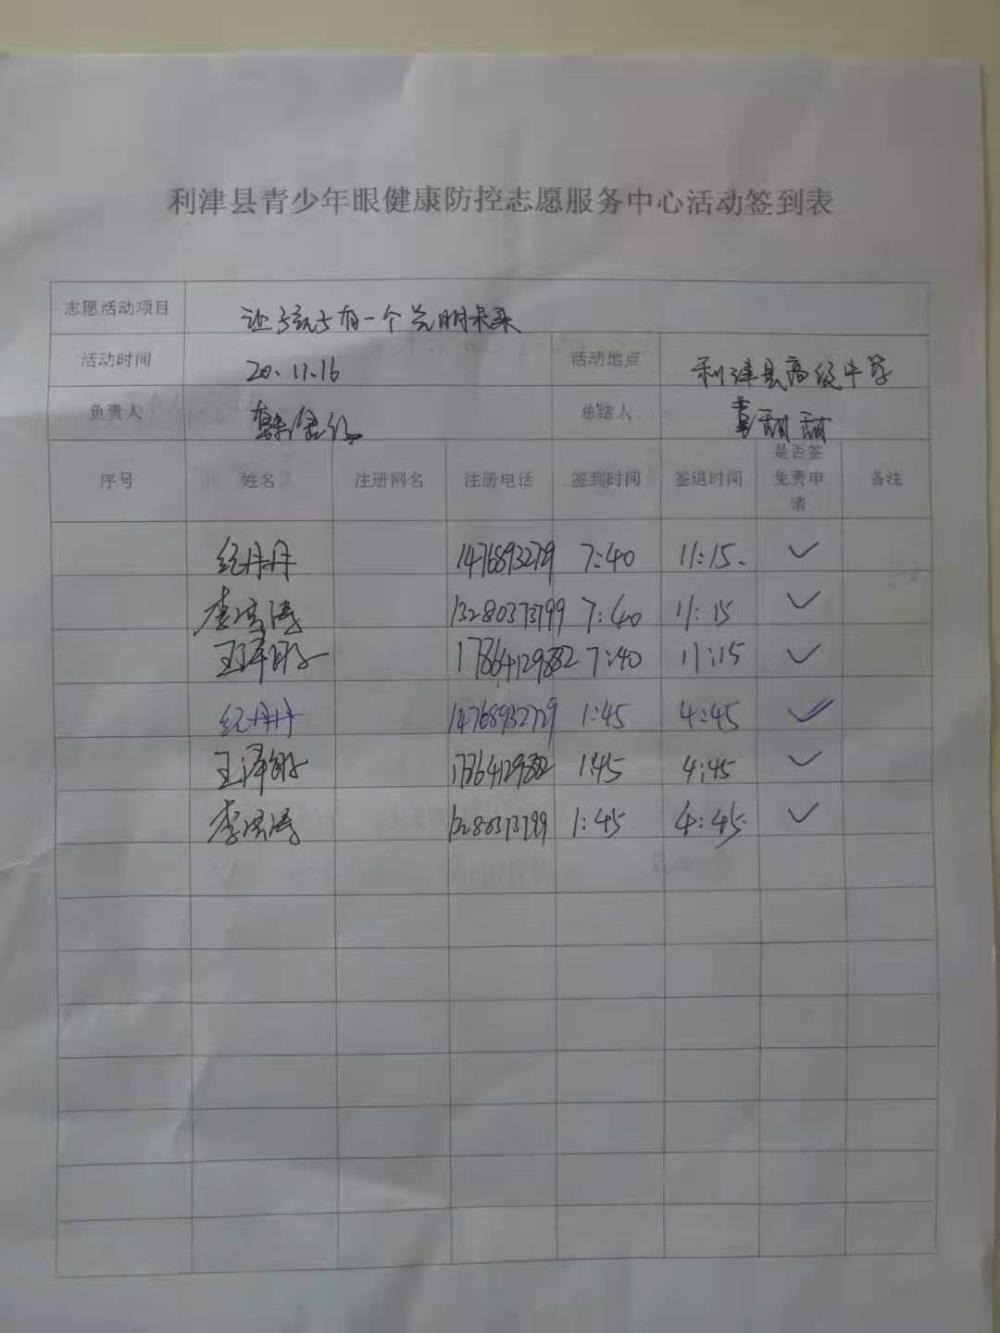 利津县青少年眼健康防控志愿服务中心活动签到表
志愿活动项目 让孩子有一个光明未来
活动时间 20.11.16 活动地点 利津县高级中学
负责人 总结人 甜甜
序号 姓名 注册网名 注册电话 签到时间 签退时间 是否签免责申请 备注
纪丹丹 1476893279 7:40 11:15. ✓
李洪涛 13280373799 7:40 11:15 ✓
王泽 17864129882 7:40 11:15 ✓
纪丹丹 14768932729 1:45 4:45 ✓
王泽 17864129882 1:45 4:45 ✓
李洪涛 13280373799 1:45 4:45. ✓